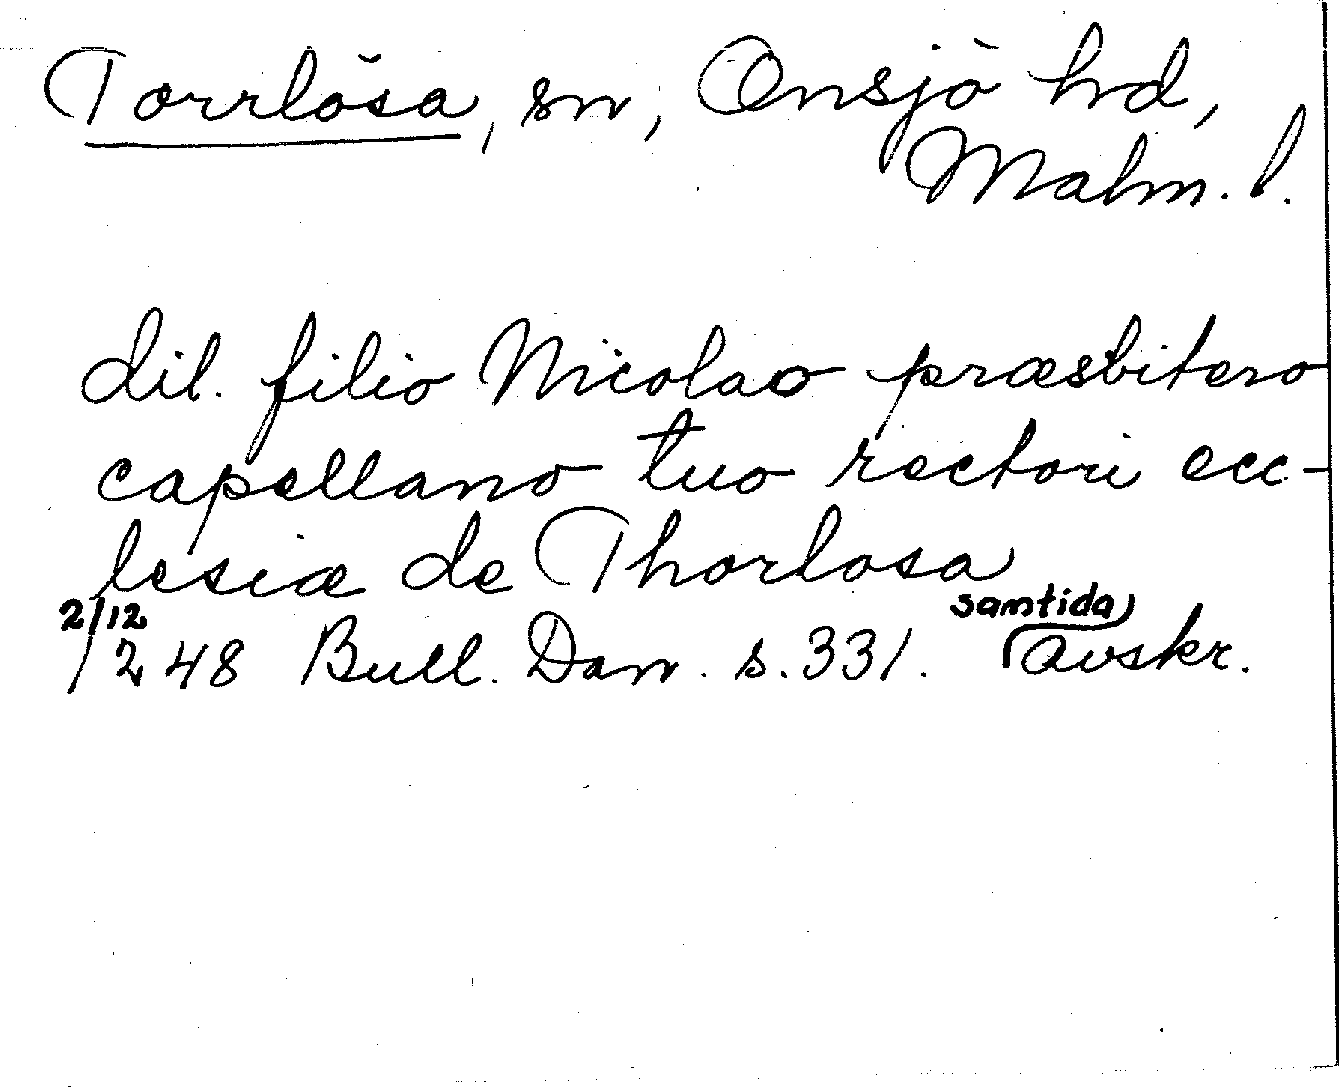 Torrlösa, sn, Onsjö hd,
Malm. l.
dil. filio Nicolao præsbitero
capellano tuo rectori ecc-
lesiæ de Thorlosa
2/12 samtida
1248 Bull. Dan. s. 331. avskr.